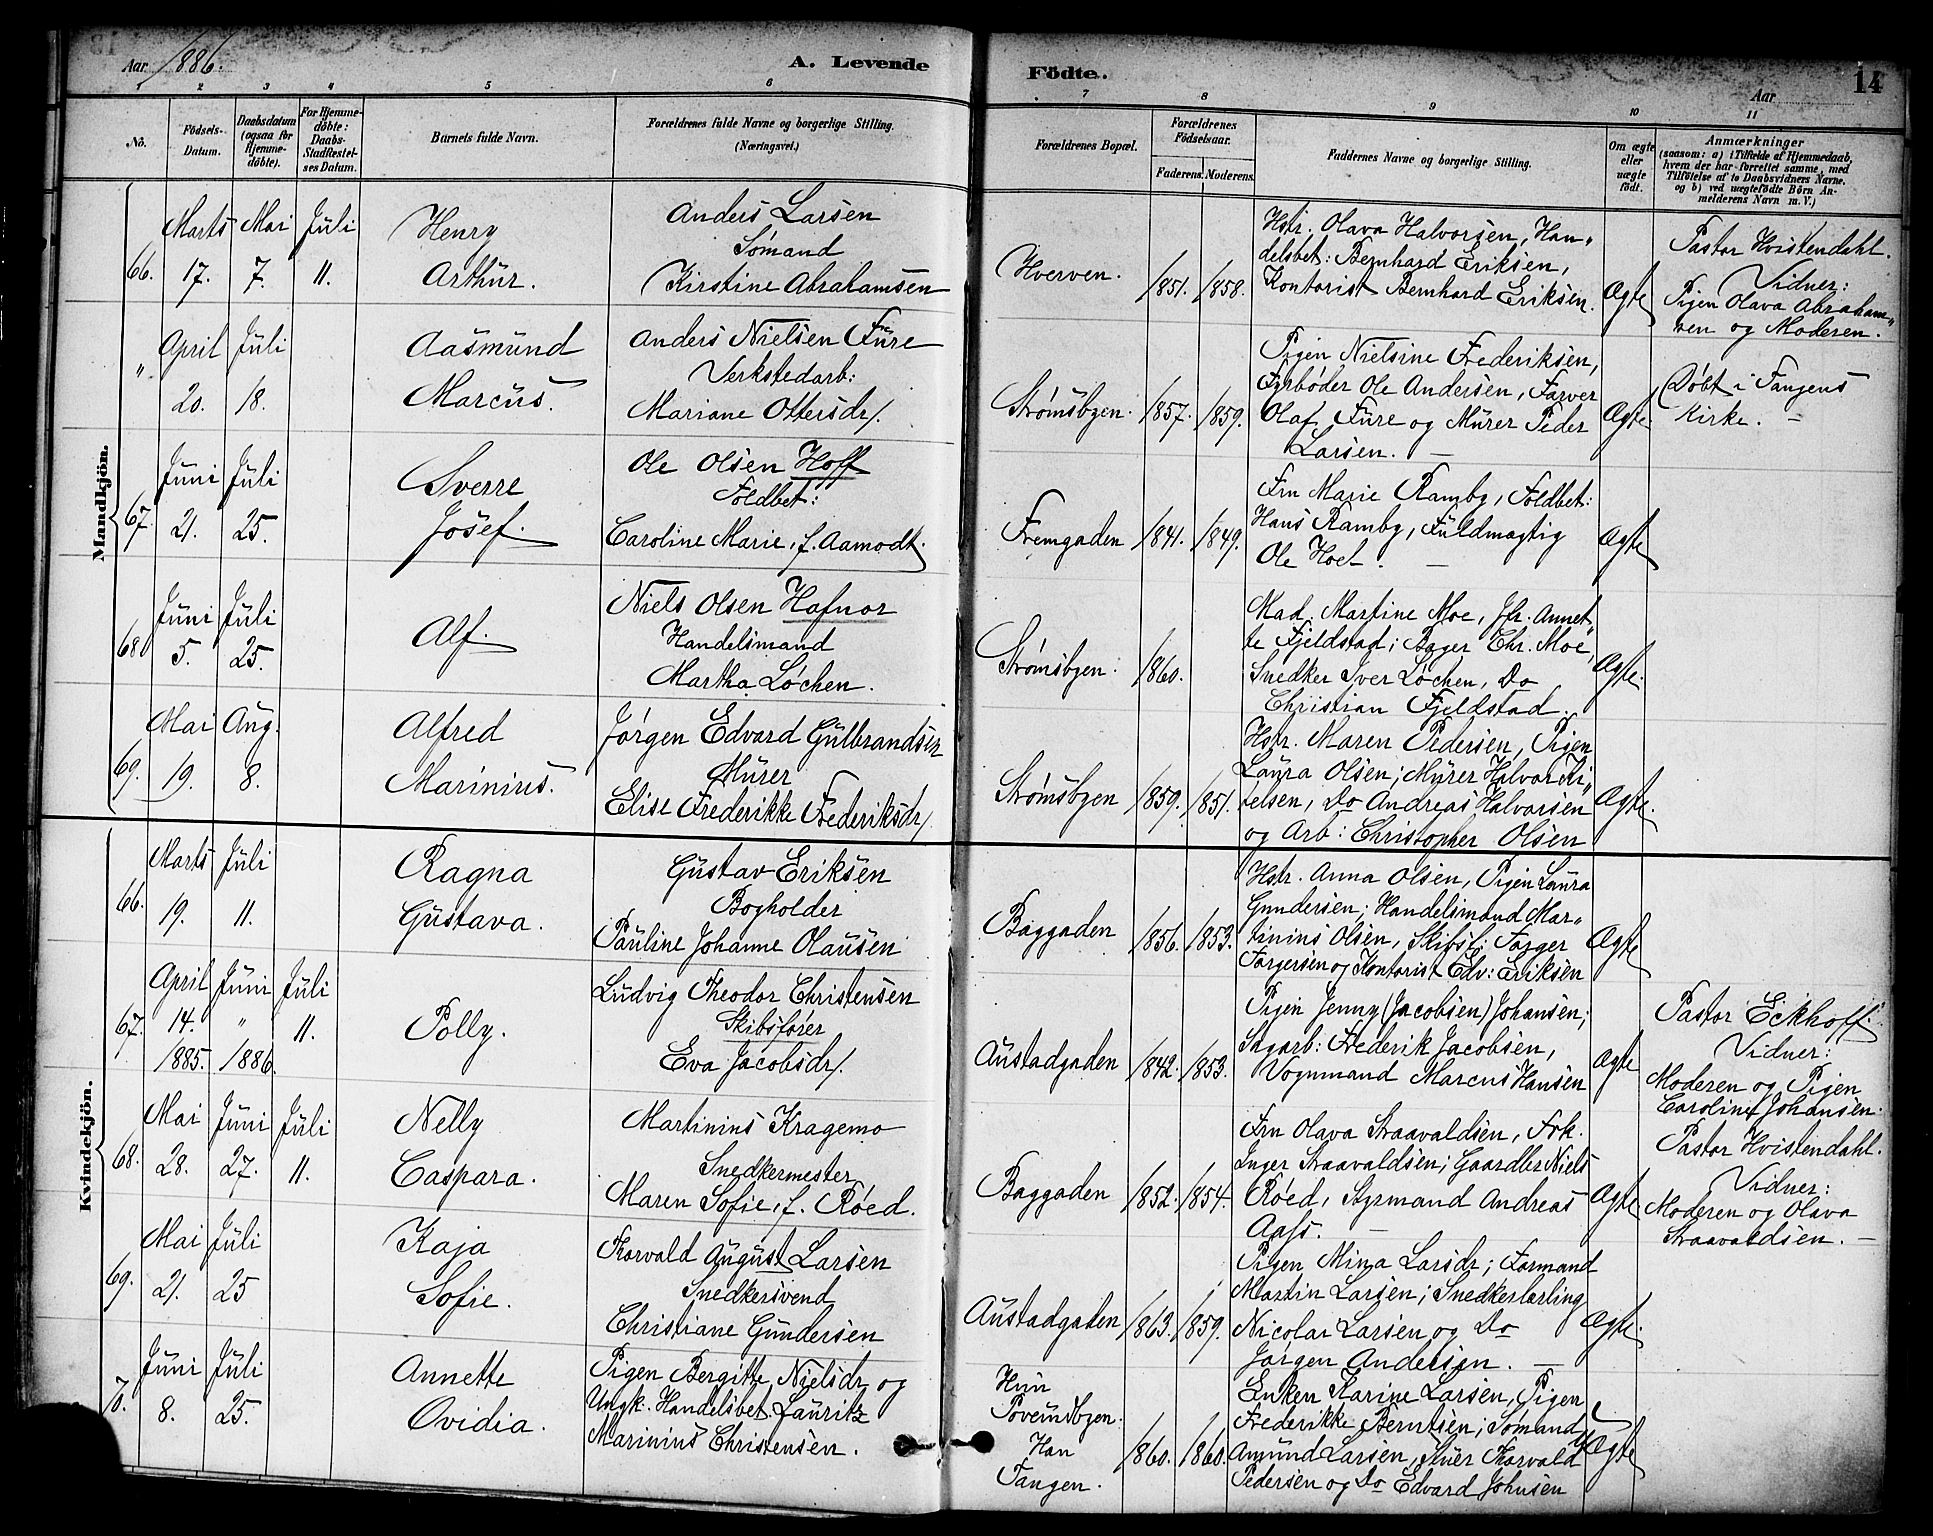 Aar 1886.
A. Levende
Födte.
Aar
14
1 2 3 4 5 6 7 8 9 10 11
No.
Födsels-Datum.
Daabsdatum (ogsaa for Hjemme-döbte).
For Hjemme-döbte: Daabs-Stadfæstel-ses Datum.
Barnets fulde Navn.
Forældrenes fulde Navne og borgerlige Stilling.
(Næringsvei.)
Forældrenes Bopæl.
Forældrenes Födselsaar.
Faderens. Moderens.
Faddernes Navne og borgerlige Stilling.
Om ægte eller uægte födt.
Anmærkninger
(saasom: a) i Tilfælde af Hjemmedaab,
hvem der har forrettet samme, med
Tilföielse af to Daabsvidners Navne.
og b) ved uægtefödte Börn An-
melderens Navn m. V.)
Mandkjön.
66.
Marts 17.
Mai 7.
Juli 11.
Henry
Arthur.
Anders Larsen
Sømand
Kirstine Abrahamsen
Hverven.
1851. 1858.
Hstr. Olava Halvorsen, Han"
delsbet: Bernhard Eriksen,
Kontorist Bernhard Eriksen.
Ægte
Pastor Hvistendahl.
Vidner:
Pigen Olava Abraham"
sen og Moderen.
"
April 20.
Juli 18.
Aasmund
Marcus.
Anders Nielsen Fure
Verkstedarb:
Mariane Ottersdr/.
Strømsbyen.
1857. 1859.
Pigen Nielsine Frederiksen,
Fyrbøder Ole Andersen, Farver
Olaf Fure og Murer Peder
Larsen. —
Ægte
Døbt i Tangens
Kirke. —
67.
Juni 21.
Juli 25.
Sverre
Josef.
Ole Olsen Hoff
Toldbet:
Caroline Marie, f. Aamodt.
Fremgaden
1841. 1849.
Fru Marie Ramby, Toldbet:
Hans Ramby, Fuldmægtig
Ole Hoel. —
Ægte
68
Juni 5.
Juli 25.
Alf.
Niels Olsen Hafnor
Handelsmand
Martha Løchen.
Strømsbyen:
1860.
Mad. Martine Moe, Jfr. Annet"
te Fjeldstad; Bager Chr. Moe,
Snedker Iver Løchen, Do
Christian Fjeldstad.
Ægte.
69.
Mai 19.
Aug. 8.
Alfred
Marinius.
Jørgen Edvard Gulbrandsen
Murer
Elise Frederikke Frederiksdr/.
Strømsbyen
1859. 1851.
Hstr. Maren Pedersen, Pigen
Laura Olsen; Murer Halvor Ki"
telsen, Do Andreas Halvorsen
og Arb: Christopher Olsen
Ægte.
Kvindekjön.
66.
Marts 19.
Juli 11.
Ragna
Gustava.
Gustav Eriksen
Bogholder
Pauline Johanne Olausen
Baggaden
1856. 1853.
Hstr. Anna Olsen, Pigen Laura
Gundersen; Handelsmand Mar"
tinius Olsen, Skibst: Torger
Torgersen og Kontorist Edv: Eriksen
Ægte
67.
April 14. 1885.
Juni " 1886.
Juli 11.
Polly.
Ludvig Theodor Christensen
Skibsfører
Eva Jacobsdr/.
Austadgaden
1842. 1853.
Pigen Jenny (Jacobsen) Johansen;
Sagarb: Frederik Jacobsen,
Vognmand Marcus Hansen
Ægte
Pastor Eckhoff.
Vidner:
Moderen og Pigen
Caroline Johansen.
68.
Mai 28.
Juni 27.
Juli 11.
Nelly
Caspara.
Martinius Kragemo
Snedkermester
Maren Sofie, f. Røed.
Baggaden
1852. 1854.
Fru Olava Straavaldsen, Frk.
Inger Straavaldsen; Gaardbr Niels
Røed, Styrmand Andreas
Aass. —
Ægte.
Pastor Hvistendahl.
Vidner:
Moderen og Olava
Straavaldsen. —
69.
Mai 21.
Juli 25
Kaja
Sofie.
Thorvald August Larsen
Snedkersvend
Christiane Gundersen
Austadgaden
1863. 1859.
Pigen Mina Larsdr; Formand
Martin Larsen; Snedkerlærling
Nicolai Larsen og Do
Jørgen Andersen. —
Ægte.
70.
Juni 8.
Juli 25.
Annette
Ovidia.
Pigen Bergitte Nielsdr og
Ungk. Handelsbet. Lauritz
Marinius Christensen.
Hun
Han
Tangen.
1860. 1860.
Enken Karine Larsen, Pigen
Frederikke Berntsen; Sømand
Amund Larsen, Thorvald
Pedersen og Do Edvard Johnsen
UÆgte